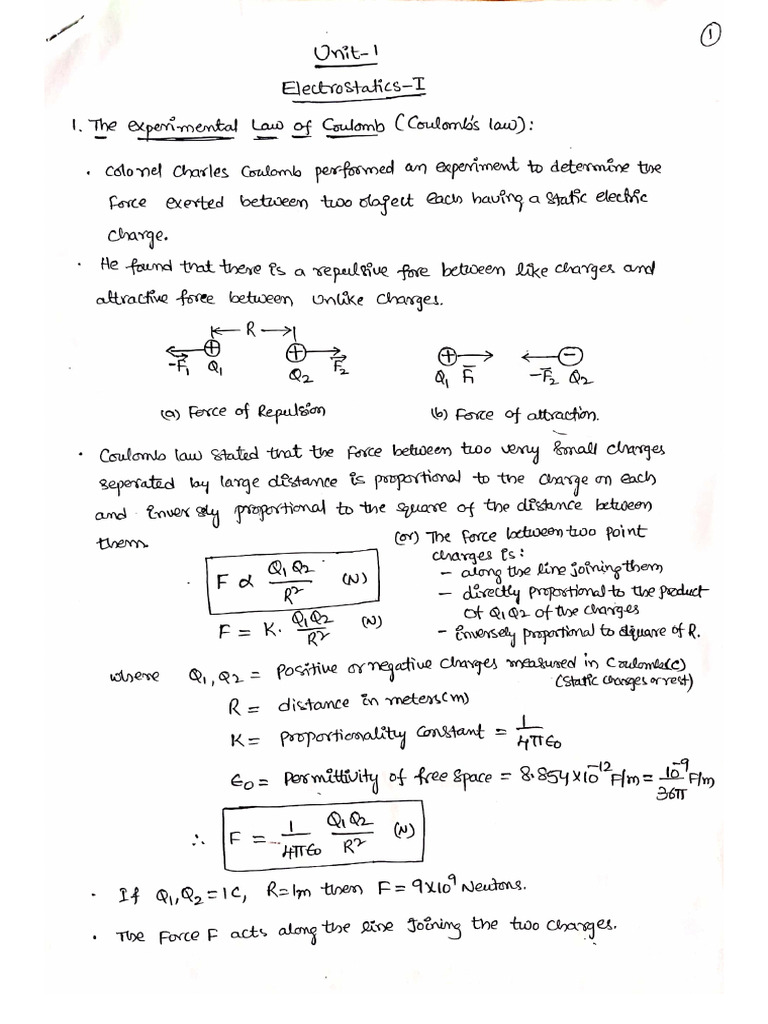 1
Unit-1
Electrostatics-I
1. The experimental Law of Coulomb (Coulomb's law):
• Colonel Charles Coulomb performed an experiment to determine the
force exerted between two object each having a static electric
charge.
• He found that there is a repulsive fore between like charges and
attractive force between unlike charges.
R
-F̅₁ Q₁ Q₂ F̅₂
Q₁ F̅₁ -F̅₂ Q₂
(a) Force of Repulsion (b) Force of attraction.
• Coulombs law stated that the force between two very small charges
seperated by large distance is proportional to the charge on each
and inversly proportional to the square of the distance between
them.
(or) The force between two point
charges is:
- along the line joining them
- directly proportional to the product
of Q₁Q₂ of the charges
- inversely proportional to square of R.
F α Q₁Q₂/R² (N)
F = K. Q₁Q₂/R² (N)
where Q₁,Q₂ = positive or negative charges measured in Coulombs(C)
(static charges or rest)
R = distance in meters(m)
K = proportionality constant = 1/4πϵ₀
ϵ₀ = permittivity of free space = 8.854×10⁻¹² F/m = 10⁻⁹/36π F/m
∴ F = 1/4πϵ₀ Q₁Q₂/R² (N)
• If Q₁,Q₂ = 1C, R=1m then F = 9×10⁹ Newtons.
• The force F acts along the line joining the two charges.